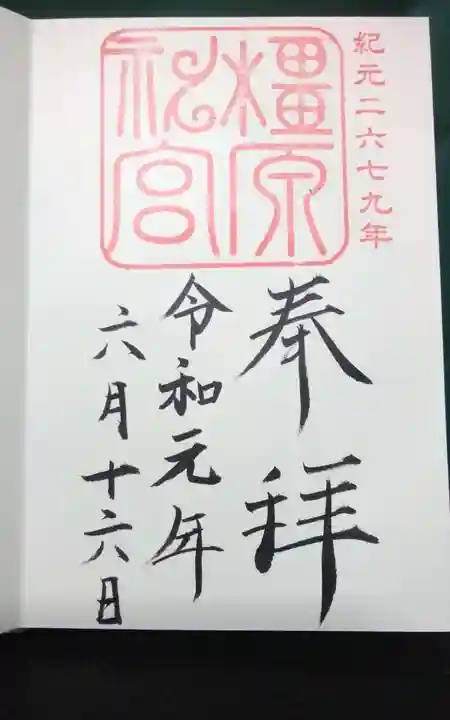 紀元二六七九年
橿原
神宮
奉拝
令和元年
六月十六日